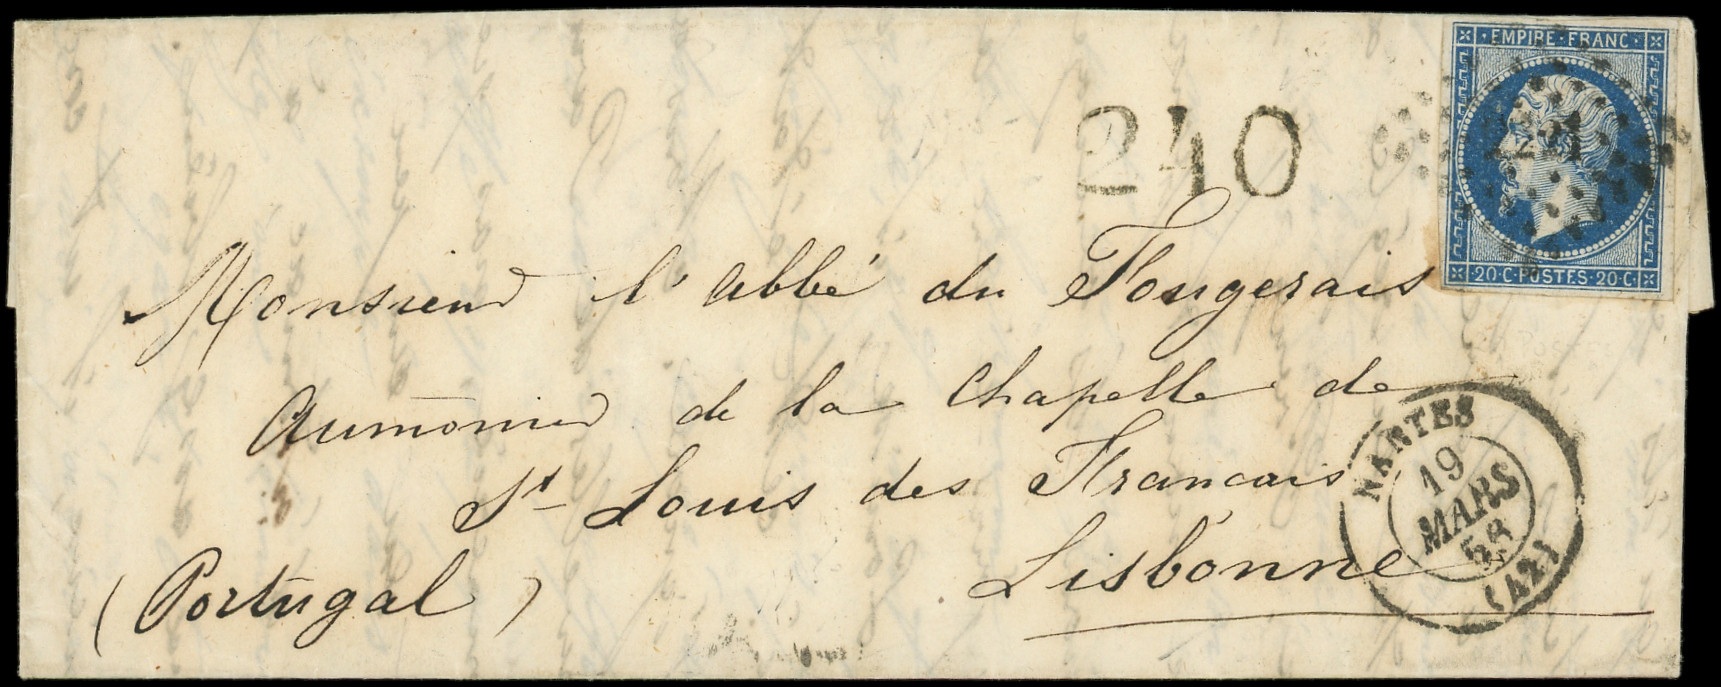 · EMPIRE · FRANC ·
240
20 · C · POSTES · 20 · C ·
Monsieur l'abbé du Fougerais
aumônier de la Chapelle de
St Louis des Francais
Lisbonne
(Portugal)
NANTES
19
MARS
58
(42)